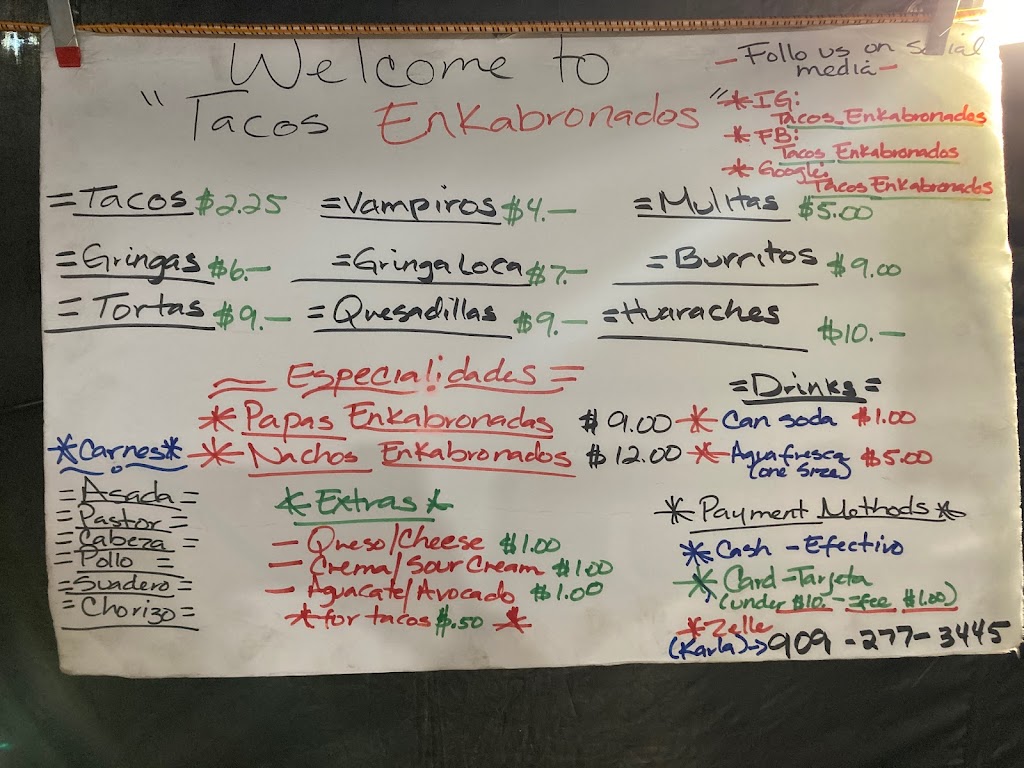 Welcome to
"Tacos Enkabronados"
- Follo us on Social
media -
* IG:
Tacos_Enkabronados
* FB:
Tacos Enkabronados
* Google:
Tacos Enkabronados
=Tacos $2.25 =Vampiros $4.— =Mulitas $5.00
=Gringas $6.— =Gringa Loca $7.— =Burritos $9.00
=Tortas $9.— =Quesadillas $9.— =Huaraches $10.—
= Especialidades =
* Papas Enkabronadas $9.00
* Nachos Enkabronados $12.00
=Drinks=
* Can soda $1.00
* Agua fresca $5.00
(one size)
*Carnes*
=Asada=
=Pastor=
=Cabeza=
=Pollo=
=Suadero=
=Chorizo=
* Extras *
- Queso/Cheese $1.00
- Crema/Sour Cream $1.00
- Aguacate/Avocado $1.00
*for tacos $.50 *
* Payment Methods *
* Cash - Efectivo
* Card - Tarjeta
(under $10.- = fee $1.00)
* Zelle
(Karla)-> 909-277-3445